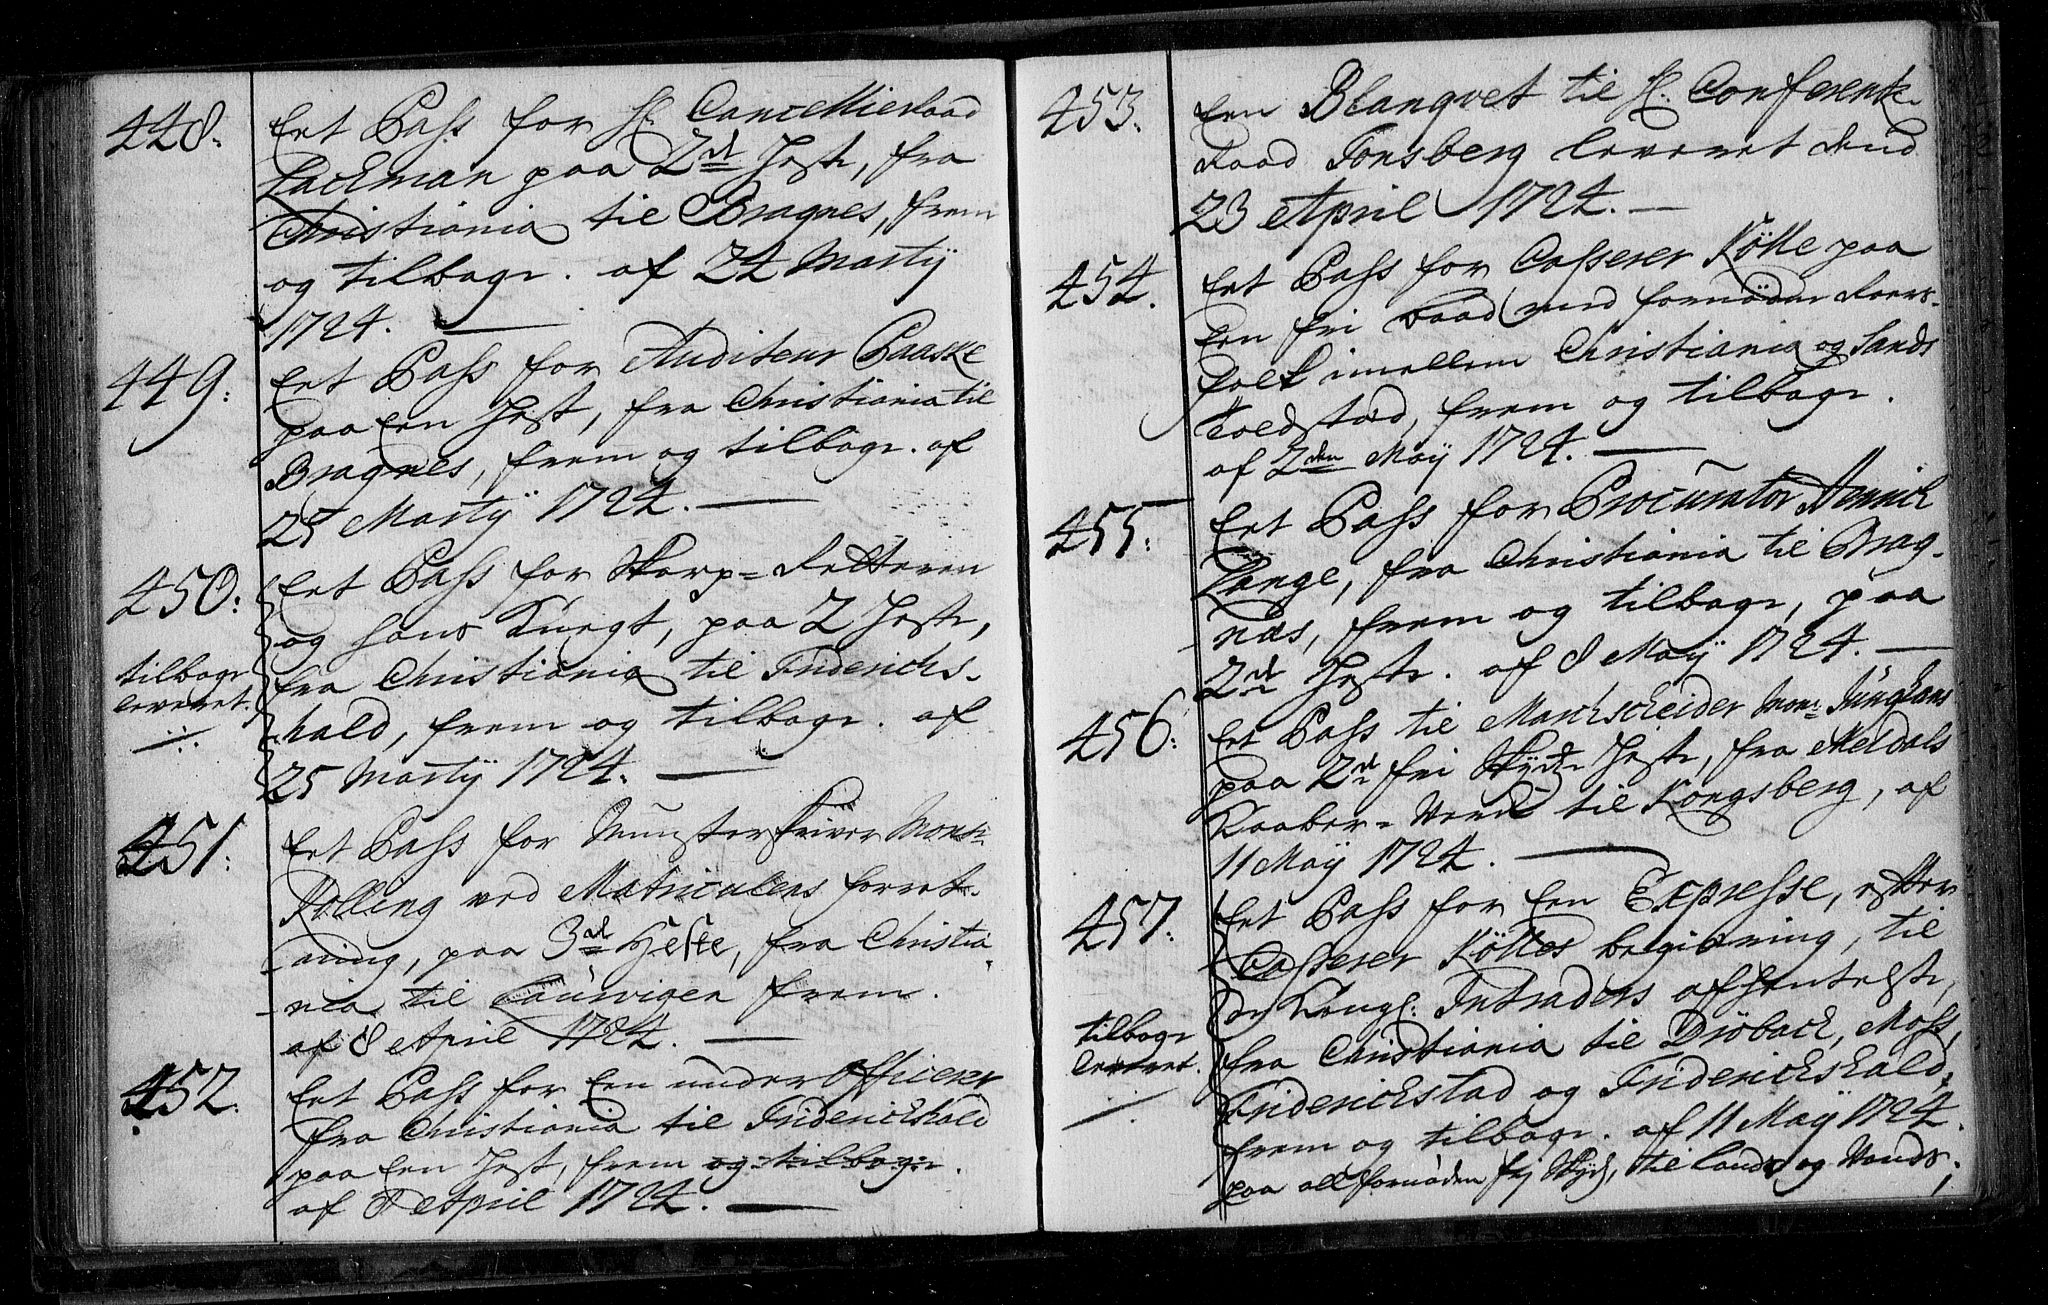 448. Eet Pass for H. Cancellieraad
Lackman paa 2de Heste, fra
Christiania til Bragnes, frem
og tilbage. af 24 Martij
1724.
449. Eet Pass for Auditeur Paaske
paa een Hest, fra Christiania til
Bragnes, frem og tilbage. af
25 Martij 1724.
450. Eet Pass for Skarp-Retteren
og hans Knegt, paa 2 Heste,
fra Christiania til Friderichs-
hald, frem og tilbage. af
25 Martij 1724.
tilbage
leveret.
451. Eet Pass for Munsterskriver Monsr
Kolling ved Matriculens forret-
ning, paa 3de Heste, fra Christia-
nia til Laurvigen frem.
af 8 April 1724.
452. Eet Pass for Een under Officerer
fra Christiania til Friderichshald
paa een Hest, frem og tilbage.
af 8 April 1724.
453. Een Blanqvet til H. Conferentz-
Raad Tonsberg leveret dend
23 April 1724.
454. Eet Pass for Casserer Kölle paa
een fri baad med fornøden Roers-
folk imellem Christiania og Sands
Toldstæd, frem og tilbage.
af 2den Maij 1724.
455. Eet Pass for Procurator
Lange, fra Christiania til Brag-
næs, frem og tilbage, paa
2de Heste. af 8 Maij 1724.
456. Eet Pass til Marckscheider Monsr Junghans
paa 2de fri Skyds Heste, fra Meldals
Kaaber-Verck til Kongsberg, af
11 Maij 1724.
457. Eet Pass for Een Expresse, efter
Casserer Köttes begiæring, til
de Kongl. Intraders afhentelse,
fra Christiania til Dröback, Moss,
Friderichstad og Friderichshald,
frem og tilbage. af 11 Maij 1724.
paa all fornøden frj Skyds, til lands og Vands;
tilbage
leveret.